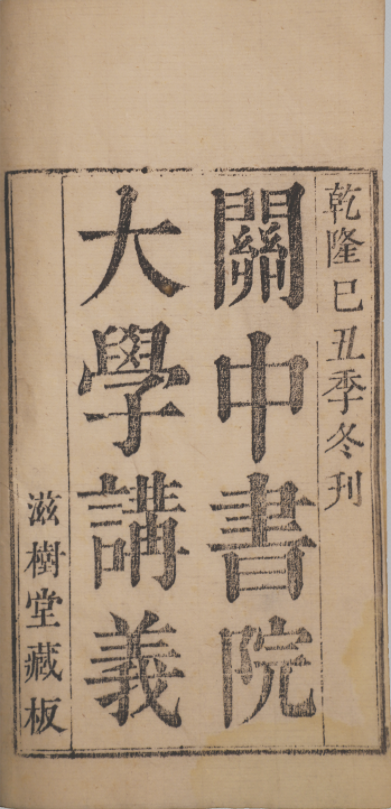 乾隆己丑季冬刊
關中書院
大學講義
滋樹堂藏板